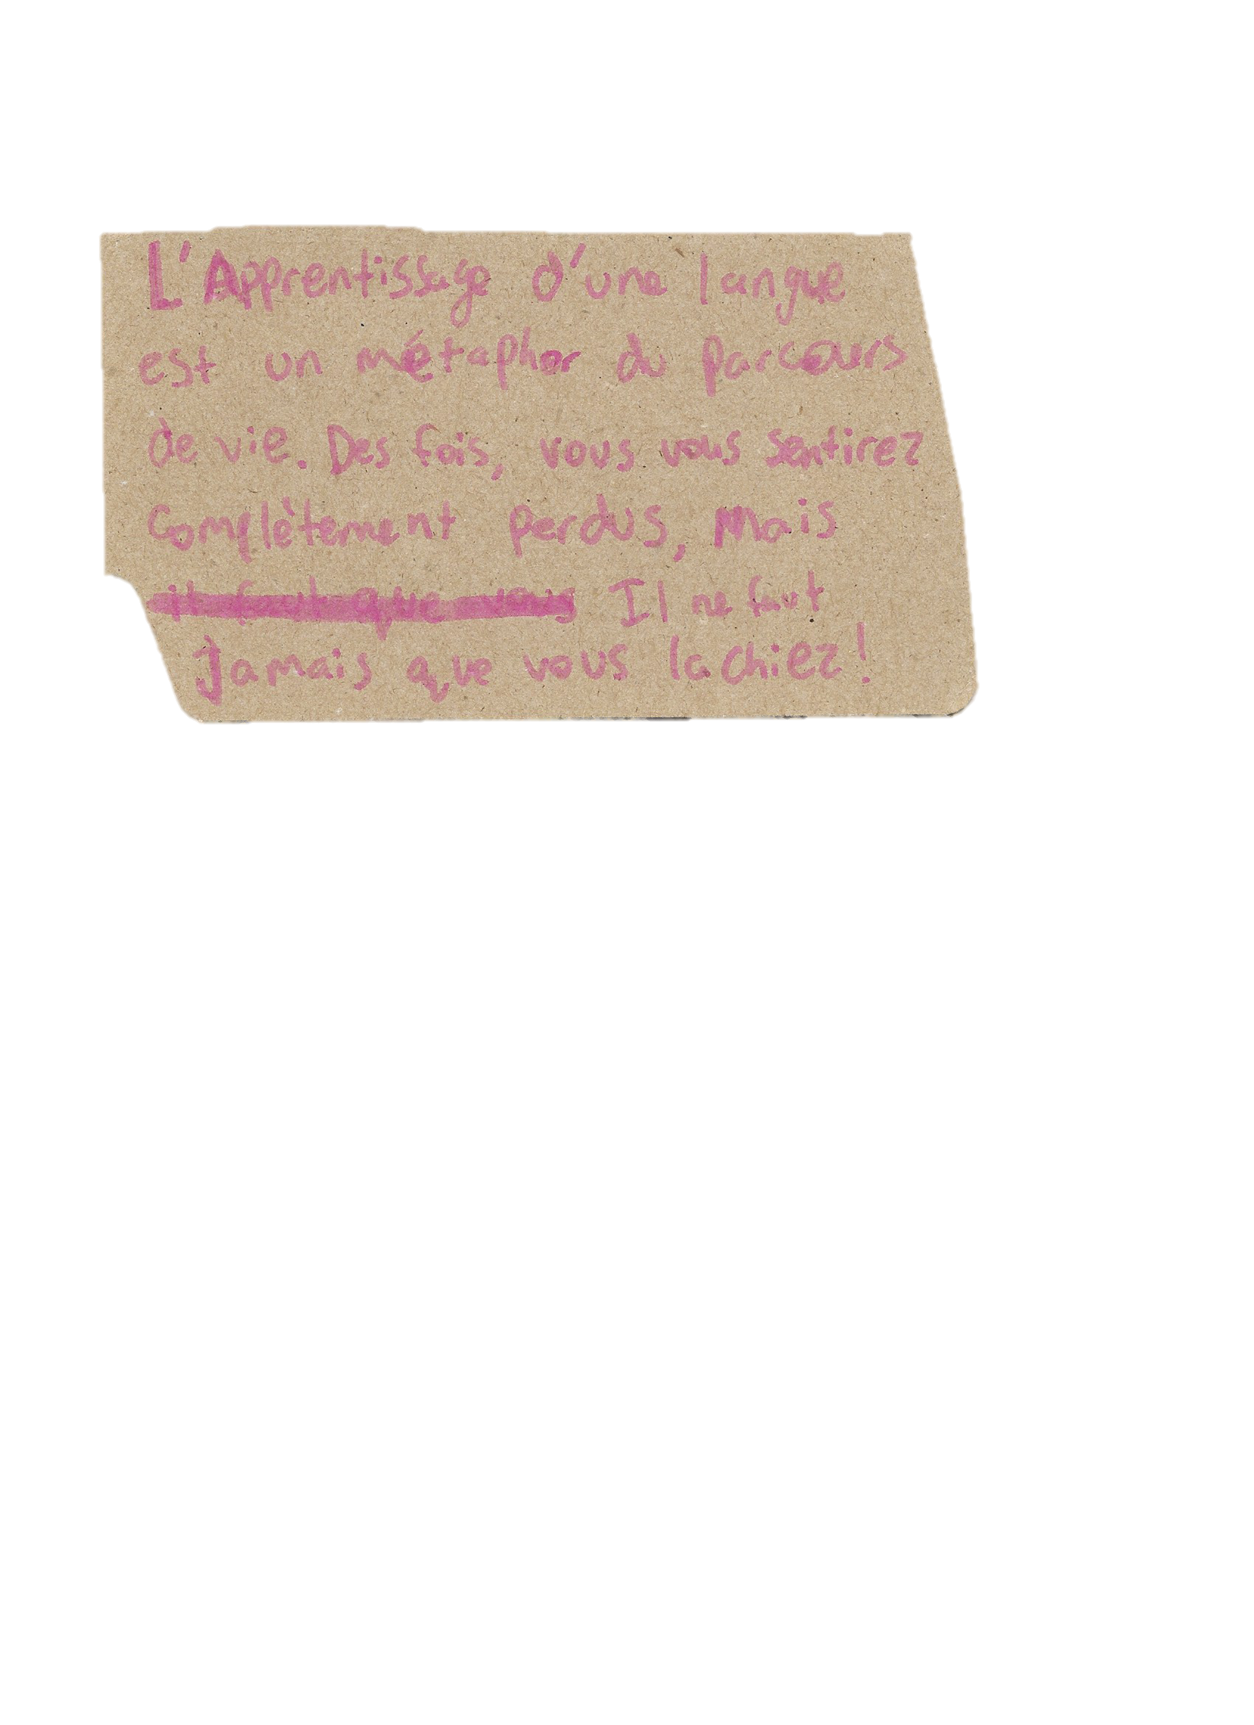 L'Apprentissage d'une langue
est un métaphor du parcours
de vie. Des fois, vous vous sentirez
complètement perdus, mais
it faut que vous Il ne faut
jamais que vous lachiez!